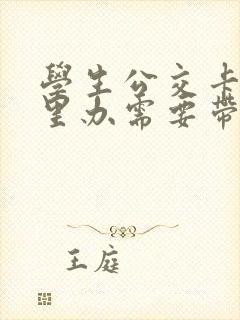 學生公交卡
里办需要带
王庭